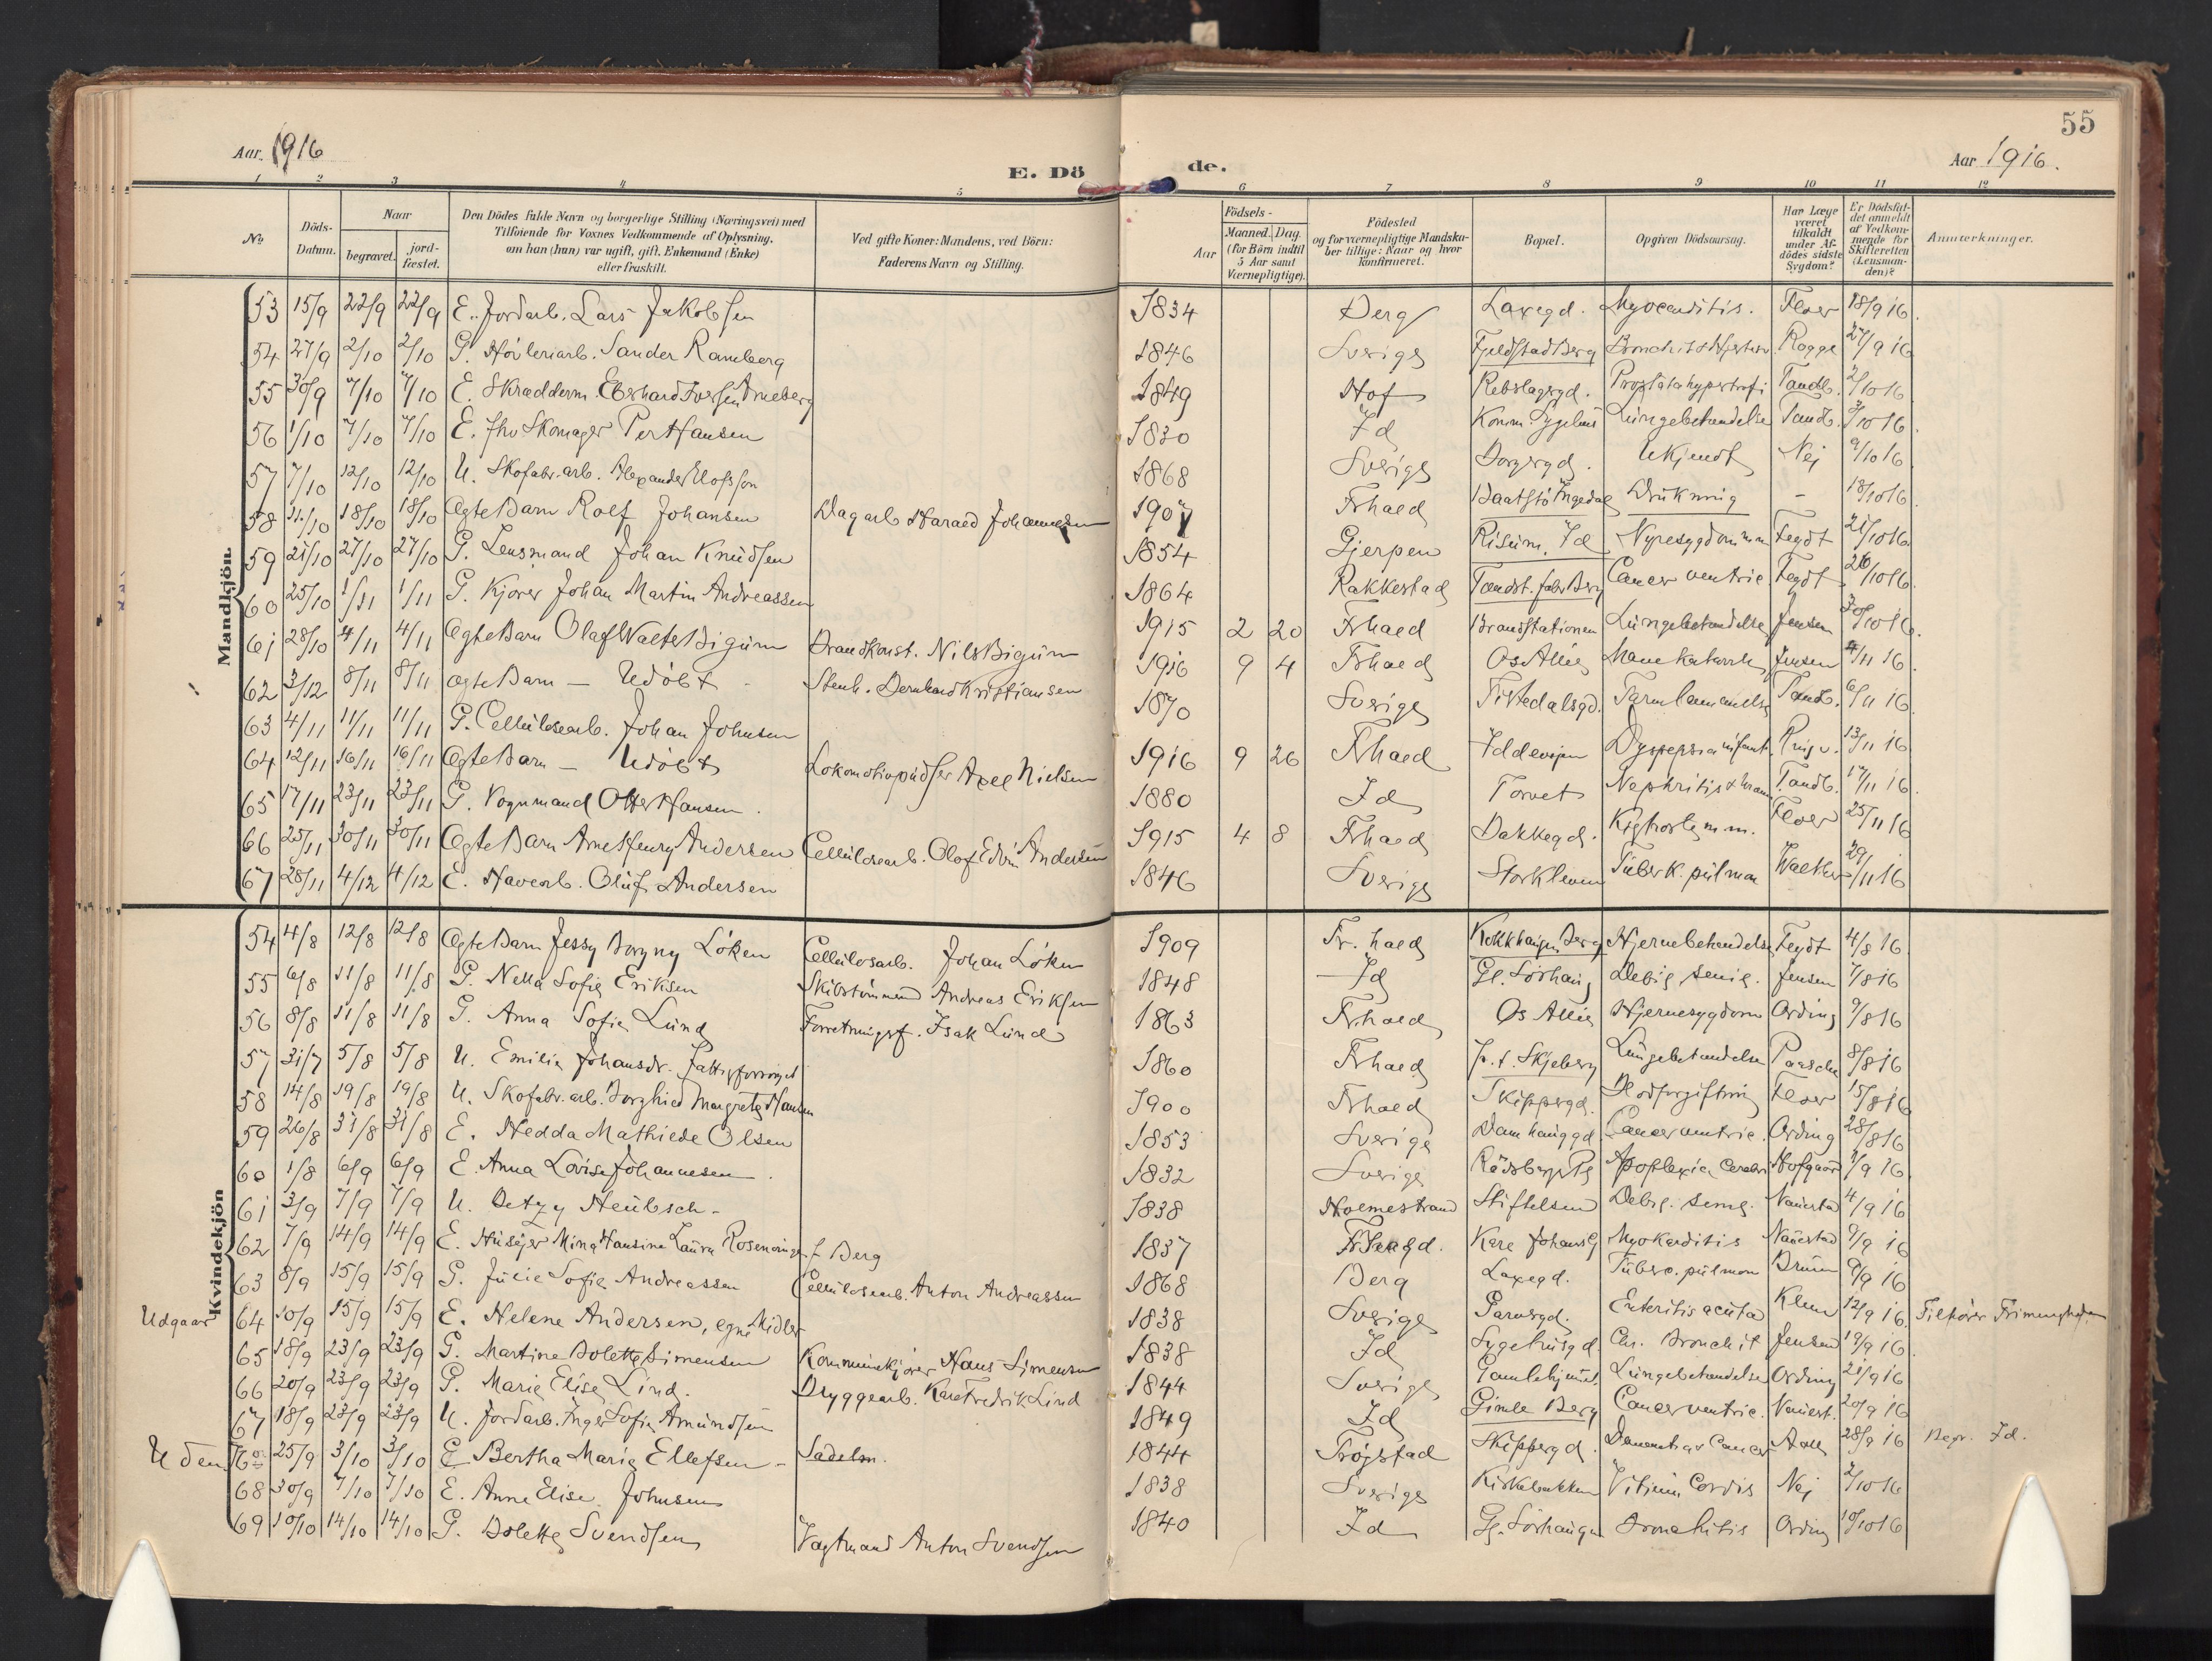 55
Aar. 1916
E. Dö
de.
Aar 1916.
1 2 3 4 5 6 7 8 9 10 11 12
No
Döds-Datum.
Naar
begravet.
jord-fæstet.
Den Dödes fulde Navn og borgerlige Stilling (Næringsvei) med
Tilföiende for Voxnes Vedkommende af Oplysning,
om han (hun) var ugift, gift, Enkemand (Enke)
eller fraskilt.
Ved gifte Koner: Mandens, ved Börn:
Faderens Navn og Stilling.
Födsels-
Aar
Maaned. Dag.
(for Börn indtil
5 Aar samt
Værnepligtige).
Födested
og for værnepligtige Mandska-
ber tillige: Naar og hvor
konfirmeret.
Bopæl.
Opgiven Dödsaarsag.
Har Læge
været
tilkaldt
under Af-
dödes sidste
Sygdom?
Er Dödsfal-
det anmeldt
af Vedkom-
mende for
Skifteretten
(Lensman-
den)?
Anmærkninger.
Mandkjön.
53 15/9 22/9 22/9 E. Jordarb. Lars Jakobsen 1834 Berg Laxegd. Myocarditis. Floer 18/9 16.
54 27/9 2/10 2/10 G. Hövleriarb. Sander Ramberg 1846 Sverige Fjeldstad Berg Rogge 27/9 16
55 30/9 7/10 7/10 E. Skrædderm. Eberhard Iversen Arneberg 1849 Hof Rebslagergd. Prostatahypertrofi Tandb. 2/10 16
56 1/10 7/10 7/10 E. fhv Skomager Per Hansen 1830 Id Komm. Sygehus Lungebetændelse Tandb. 3/10 16
57 7/10 12/10 12/10 U. Skofabr. arb. Alexander Olofsson 1868 Sverige Borgergd. Ukjendt Nej 9/10 16
58 11/10 18/10 18/10 Ægte Barn Rolf Johansen Dagarb Harald Johannesen 1907 Frhald Baatstö Ingedal Drukning - 13/10 16
59 21/10 27/10 27/10 G. Lensmand Johan Knudsen 1854 Gjerpen Risum, Id Nyresygdom m.m. Fegdt 21/10 16.
60 25/10 1/11 1/11 G. Kjörer Johan Martin Andreassen 1864 Rakkestad Tændst. fabr Berg Cancer ventric Fegdt 26/10 16.
61 28/10 4/11 4/11 Ægte Barn Olaf Walter Bigum Brandkonst. Nils Bigum 1915 2 20 Frhald Brandstationen Lungebetændelse Jensen 30/10 16.
62 3/12 8/11 8/11 Ægte Barn - Udöbt Stenh. Bernhard Kristiansen 1916 9 4 Frhald Os Allé Mavekatarrh Jensen 4/11 16.
63 4/11 11/11 11/11 G. Cellulosearb. Johan Johnsen 1870 Sverige Tistedalsgd. Tarmlammelse Tandb. 6/11 16.
64 12/11 16/11 16/11 Ægte Barn - Udöbt Lokomotivpudser Axel Nielsen 1916 9 26 Frhald Iddeveien Dyspepsia infant. 13/11 16
65 17/11 23/11 23/11 G. Vognmand Otter Hansen. 1880 Id Torvet Nephritis & Uræmi Tandb. 17/11 16.
66 25/11 30/11 30/11 Ægte Barn Arne Henry Andersen Cellulosearb. Olof Edvin Andersen 1915 4 8 Frhald Bakkegd. Kighoste m.m. Floer 25/11 16
67 28/11 4/12 4/12 E. Havearb. Oluf Andersen 1846 Sverige Storkleven Tuberk. pulmon Walther 29/11 16
Kvindekjön
54 4/8 12/8 12/8 Ægte Barn Jessy Borgny Löken Cellulosarb. Johan Löken 1909 Fr.hald Kokkhaugen Berg Hjernebetændelse Fegdt 4/8 16.
55 6/8 11/8 11/8 G. Nella Sofie Eriksen Skibstömmerm. Andreas Eriksen 1848 Id Gl. Sörhaug Debil. senil. Jensen 7/8 16
56 8/8 11/8 11/8 G. Anna Sofie Lund Forretningsf. Isak Lund 1863 Fr.hald Os Allé Hjernesygdom Ording 9/8 16
57 31/7 5/8 5/8 U. Emilie Johansdr. Fattigforsörget 1860 Frhald p.t. Skjeberg Lungebetændelse Paasche 8/8 16
58 14/8 19/8 19/8 U. Skofabr. arb. Borghild Margrete Hansen 1900 Frhald Skippergd. Blodforgiftning Floer 15/8 16
59 26/8 31/8 31/8 E. Hedda Mathilde Olsen 1853 Sverige Damhauggd. Cancer ventric. Ording 28/8 16
60 1/8 6/9 6/9 E. Anna Lovise Johannesen. 1832 Sverige Rådsberg Pl Apoplexia Cerebri Hofgaard 1/9 16
61 3/9 7/9 7/9 U. Betzy Heubsch - 1838 Holmestrand Stiftelsen Debil. senil. Nauestad 4/9 16
62 7/9 14/9 14/9 E. Husejer Mina Hansine Laura Rosenvinge f. Berg 1837 Karl Johansg Myokarditis Nauestad 9/9 16
63 8/9 15/9 15/9 G. Julie Sofie Andreassen Cellulosearb. Anton Andreassen 1868 Berg Laxegd. Tuberc. pulmon Bruun 9/9 16
Udgaar 64 10/9 15/9 15/9 E. Helene Andersen, egne Midler 1838 Sverige Enteritis acuta Klem 12/9 16. Tilhörer Frimenigheden
65 18/9 23/9 23/9 G. Martine Bolette Simensen Kommunekjörer Hans Simensen 1838 Id Sygehusgd. Chr. Bronchit Jensen 19/9 16.
66 20/9 23/9 23/9 G. Marie Elise Lind. Bryggearb. Karl Fredrik Lind 1844 Sverige Gamlehjemmet Lungebetændelse Ording 21/9 16
67 18/9 23/9 23/9 U. Jordarb. Inger Sofie Amundsen 1849 Id Gimle Berg Cancer ventric. Nauest. 20/9 16
Uden No 25/9 3/10 3/10 E Bertha Marie Ellefsen - Sadelm. 1844 Tröjstad Skippergd. Dementia & Cancer 28/9 16 Begr. Id.
68 30/9 7/10 7/10 E. Anne Elise Johnsen 1838 Sverige Kirkebakken Vitium Cordis Nej 2/10 16
69 10/10 14/10 14/10 G. Bolette Svendsen Vagtmand Anton Svendsen 1840 Id Gl. Sörhaugen Bronchitis Ording 10/10 16